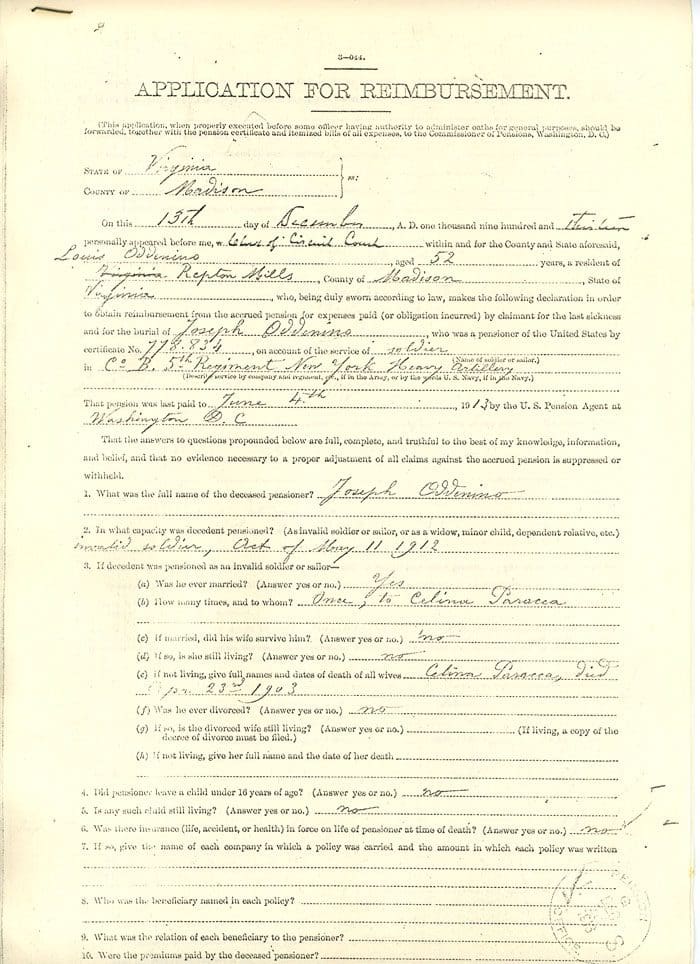 3—044.
APPLICATION FOR REIMBURSEMENT.
(This application, when properly executed before some officer having authority to administer oaths for general purposes, should be
forwarded, together with the pension certificate and itemized bills of all expenses, to the Commissioner of Pensions, Washington, D. C.)
STATE OF Virginia
COUNTY OF Madison ss:
On this 13th day of December, A. D. one thousand nine hundred and thirteen
personally appeared before me, a Clerk of Circuit Court within and for the County and State aforesaid,
Louis Oddenino, aged 52 years, a resident of
Virginia Repton Mills, County of Madison, State of
Virginia, who, being duly sworn according to law, makes the following declaration in order
to obtain reimbursement from the accrued pension for expenses paid (or obligation incurred) by claimant for the last sickness
and for the burial of Joseph Oddenino, who was a pensioner of the United States by
certificate No. 778.834, on account of the service of soldier
(Name of soldier or sailor.)
in Co B. 5th Regiment New York Heavy Artillery
(Describe service by company and regiment, etc., if in the Army, or by the words U. S. Navy, if in the Navy.)
That pension was last paid to June 4th, 1913 by the U. S. Pension Agent at
Washington D. C
That the answers to questions propounded below are full, complete, and truthful to the best of my knowledge, information,
and belief, and that no evidence necessary to a proper adjustment of all claims against the accrued pension is suppressed or
withheld.
1. What was the full name of the deceased pensioner? Joseph Oddenino
2. In what capacity was decedent pensioned? (As invalid soldier or sailor, or as a widow, minor child, dependent relative, etc.)
invalid soldier, Act of May 11 1912
3. If decedent was pensioned as an invalid soldier or sailor—
(a) Was he ever married? (Answer yes or no.) Yes
(b) How many times, and to whom? Once, to Celina Paracca
(c) If married, did his wife survive him? (Answer yes or no.) no
(d) If so, is she still living? (Answer yes or no.) no
(e) If not living, give full names and dates of death of all wives Celina Paracca, died
Apr. 23rd 1903
(f) Was he ever divorced? (Answer yes or no.) no
(g) If so, is the divorced wife still living? (Answer yes or no.) (If living, a copy of the
decree of divorce must be filed.)
(h) If not living, give her full name and the date of her death
4. Did pensioner leave a child under 16 years of age? (Answer yes or no.) no
5. Is any such child still living? (Answer yes or no.) no
6. Was there insurance (life, accident, or health) in force on life of pensioner at time of death? (Answer yes or no.) no
7. If so, give the name of each company in which a policy was carried and the amount in which each policy was written
8. Who was the beneficiary named in each policy?
9. What was the relation of each beneficiary to the pensioner?
10. Were the premiums paid by the deceased pensioner?